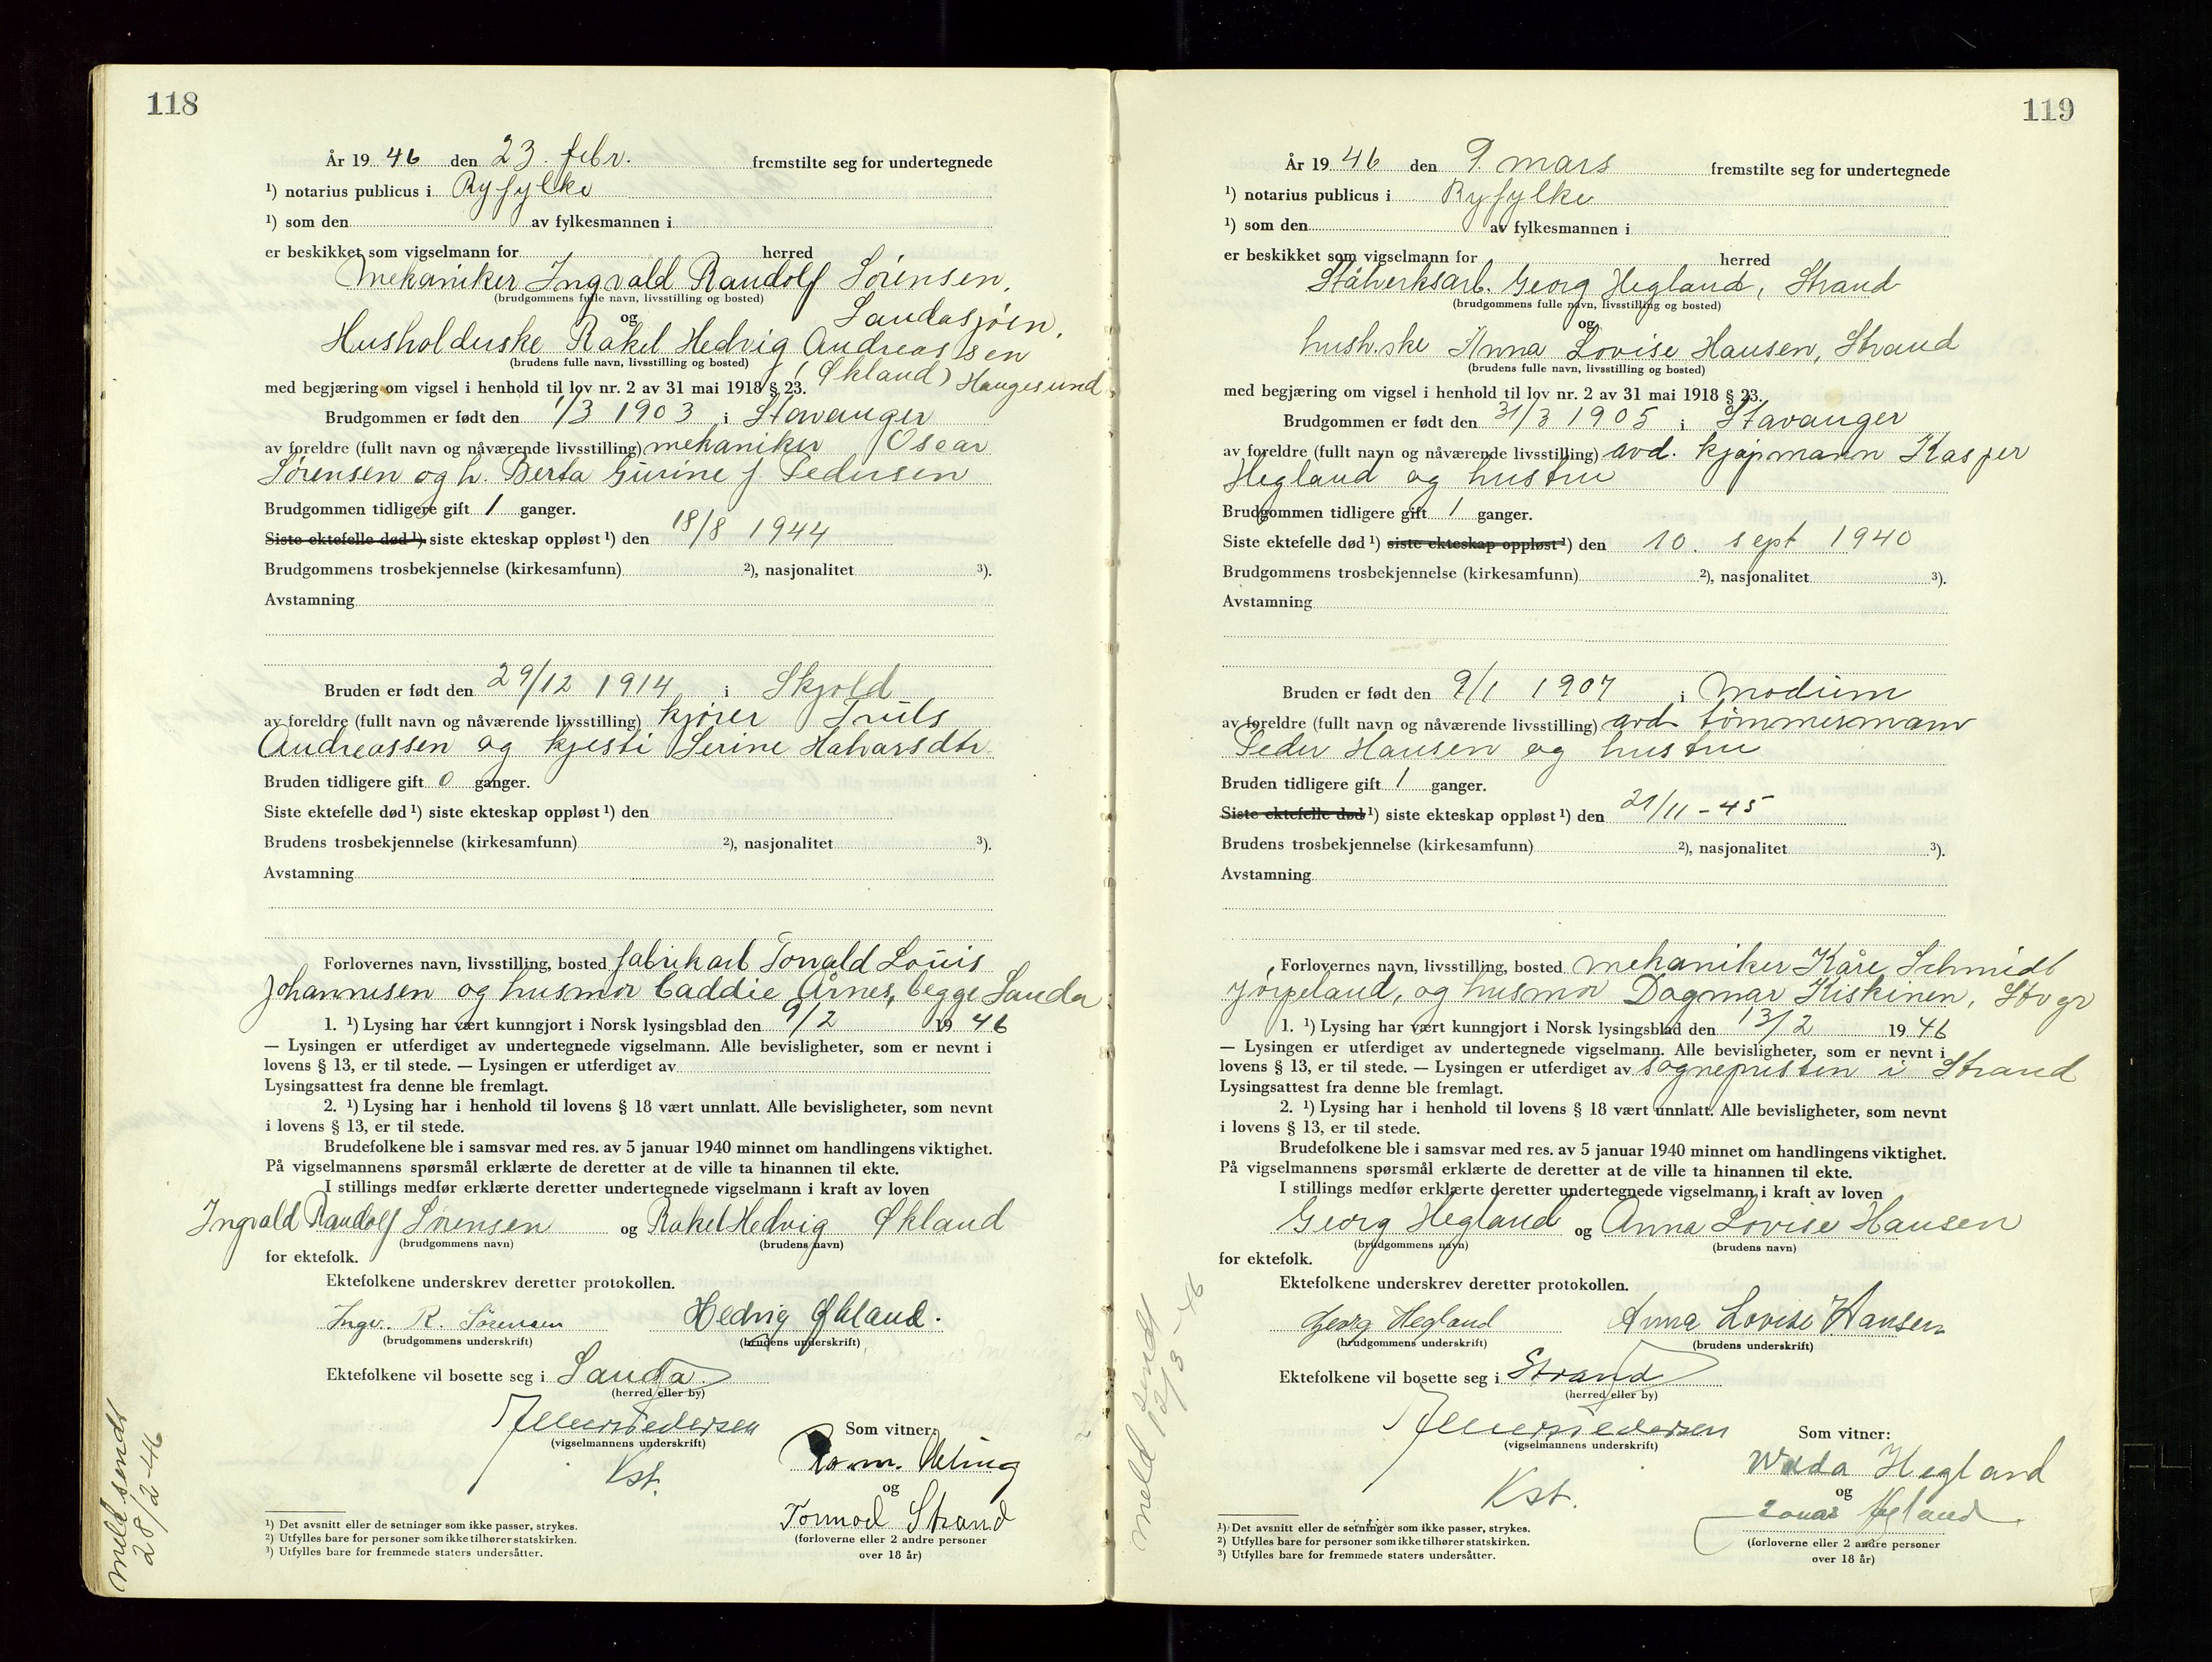 118
År 19 46 den 23. febr. fremstilte seg for undertegnede
¹) notarius publicus i Ryfylke
¹) som den av fylkesmannen i
er beskikket som vigselmann for herred
Mekaniker Ingvald Randolf Sørensen,
(brudgommens fulle navn, livsstilling og bosted)
Saudasjøen.
og
Husholderske Rakel Hedvig Andreassen
(brudens fulle navn, livsstilling og bosted)
(Økland) Haugesund
med begjæring om vigsel i henhold til lov nr. 2 av 31 mai 1918 § 23.
Brudgommen er født den 1/3 1903 i Stavanger
av foreldre (fullt navn og nåværende livsstilling) mekaniker Oscar
Sørensen og h. Berta Gurine f. Pedersen
Brudgommen tidligere gift 1 ganger.
Siste ektefelle død ¹) siste ekteskap oppløst ¹) den 18/8 1944
Brudgommens trosbekjennelse (kirkesamfunn) ²), nasjonalitet ³).
Avstamning
Bruden er født den 29/12 1914 i Skjold
av foreldre (fullt navn og nåværende livsstilling) kjører Truls
Andreassen og Kjesti Serine Halvarsdtr.
Bruden tidligere gift 0 ganger.
Siste ektefelle død ¹) siste ekteskap oppløst ¹) den
Brudens trosbekjennelse (kirkesamfunn) ²), nasjonalitet ³).
Avstamning
Forlovernes navn, livsstilling, bosted fabrikarb Torvald Louis
Johannesen og husmor Caddie Årnes, begge Sauda
1. ¹) Lysing har vært kunngjort i Norsk lysingsblad den 9/2 19 46
— Lysingen er utferdiget av undertegnede vigselmann. Alle bevisligheter, som er nevnt i
lovens § 13, er til stede. — Lysingen er utferdiget av
Lysingsattest fra denne ble fremlagt.
2. ¹) Lysing har i henhold til lovens § 18 vært unnlatt. Alle bevisligheter, som nevnt
i lovens § 13, er til stede.
Brudefolkene ble i samsvar med res. av 5 januar 1940 minnet om handlingens viktighet.
På vigselmannens spørsmål erklærte de deretter at de ville ta hinannen til ekte.
I stillings medfør erklærte deretter undertegnede vigselmann i kraft av loven
Ingvald Randolf Sørensen og Rakel Hedvig Økland
(brudgommens navn) (brudens navn)
for ektefolk.
Ektefolkene underskrev deretter protokollen.
Ingv. R. Sørensen Hedvig Økland.
(brudgommens underskrift) (brudens underskrift)
Ektefolkene vil bosette seg i Sauda
(herred eller by)
Pedersen
(vigselmannens underskrift)
Kst.
Som vitner:
og
Tormod Strand
(forloverne eller 2 andre personer
over 18 år)
¹) Det avsnitt eller de setninger som ikke passer, strykes.
²) Utfylles bare for personer som ikke tilhører statskirken.
³) Utfylles bare for fremmede staters undersåtter.
meld sendt
28/2-46
119
År 19 46 den 9. mars fremstilte seg for undertegnede
¹) notarius publicus i Ryfylke
¹) som den av fylkesmannen i
er beskikket som vigselmann for herred
Stålverksarb. Georg Hegland, Strand
(brudgommens fulle navn, livsstilling og bosted)
og
hush.ske Anna Lovise Hansen, Strand
(brudens fulle navn, livsstilling og bosted)
med begjæring om vigsel i henhold til lov nr. 2 av 31 mai 1918 § 23.
Brudgommen er født den 31/3 1905 i Stavanger
av foreldre (fullt navn og nåværende livsstilling) avd. kjøpmann Kasper
Hegland og hustru
Brudgommen tidligere gift 1 ganger.
Siste ektefelle død ¹) siste ekteskap oppløst ¹) den 10. sept 1940
Brudgommens trosbekjennelse (kirkesamfunn) ²), nasjonalitet ³).
Avstamning
Bruden er født den 9/1 1907 i Modum
av foreldre (fullt navn og nåværende livsstilling) avd. tømmermann
Peder Hansen og hustru
Bruden tidligere gift 1 ganger.
Siste ektefelle død ¹) siste ekteskap oppløst ¹) den 21/11 - 45
Brudens trosbekjennelse (kirkesamfunn) ²), nasjonalitet ³).
Avstamning
Forlovernes navn, livsstilling, bosted mekaniker Kåre Schmidt
Jørpeland, og husmor Dagmar Kiskinen, Stvgr
1. ¹) Lysing har vært kunngjort i Norsk lysingsblad den 13/2 19 46
— Lysingen er utferdiget av undertegnede vigselmann. Alle bevisligheter, som er nevnt i
lovens § 13, er til stede. — Lysingen er utferdiget av sognepresten i Strand
Lysingsattest fra denne ble fremlagt.
2. ¹) Lysing har i henhold til lovens § 18 vært unnlatt. Alle bevisligheter, som nevnt
i lovens § 13, er til stede.
Brudefolkene ble i samsvar med res. av 5 januar 1940 minnet om handlingens viktighet.
På vigselmannens spørsmål erklærte de deretter at de ville ta hinannen til ekte.
I stillings medfør erklærte deretter undertegnede vigselmann i kraft av loven
Georg Hegland og Anna Lovise Hansen
(brudgommens navn) (brudens navn)
for ektefolk.
Ektefolkene underskrev deretter protokollen.
Georg Hegland Anna Lovise Hansen
(brudgommens underskrift) (brudens underskrift)
Ektefolkene vil bosette seg i Strand
(herred eller by)
Pedersen
(vigselmannens underskrift)
Kst.
Som vitner:
Hegland
og
Hegland
(forloverne eller 2 andre personer
over 18 år)
¹) Det avsnitt eller de setninger som ikke passer, strykes.
²) Utfylles bare for personer som ikke tilhører statskirken.
³) Utfylles bare for fremmede staters undersåtter.
meld sendt
12/3-46